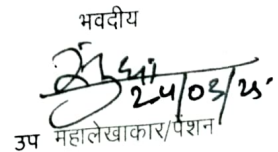 भवदीय
24/03/25
उप महालेखाकार/पेंशन